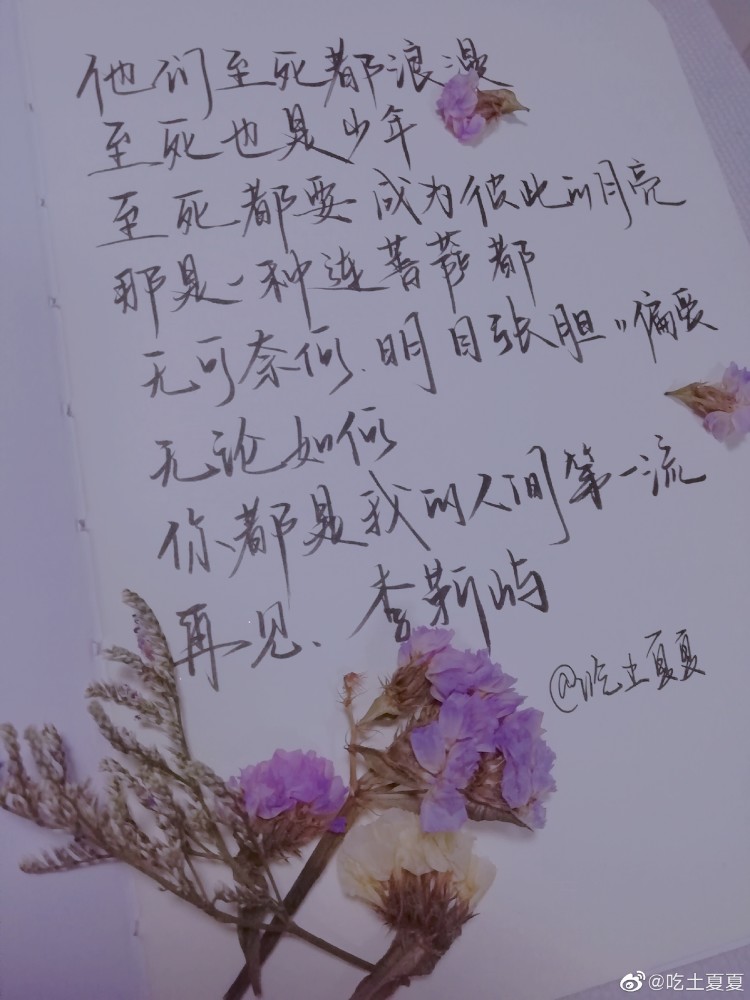 他们至死都浪漫
至死也是少年
至死都要成为彼此的月亮
那是一种连菩萨都
无可奈何、明目张胆的偏爱
无论如何
你都是我的人间第一流
再见、李斯屿
@吃土夏夏
@吃土夏夏